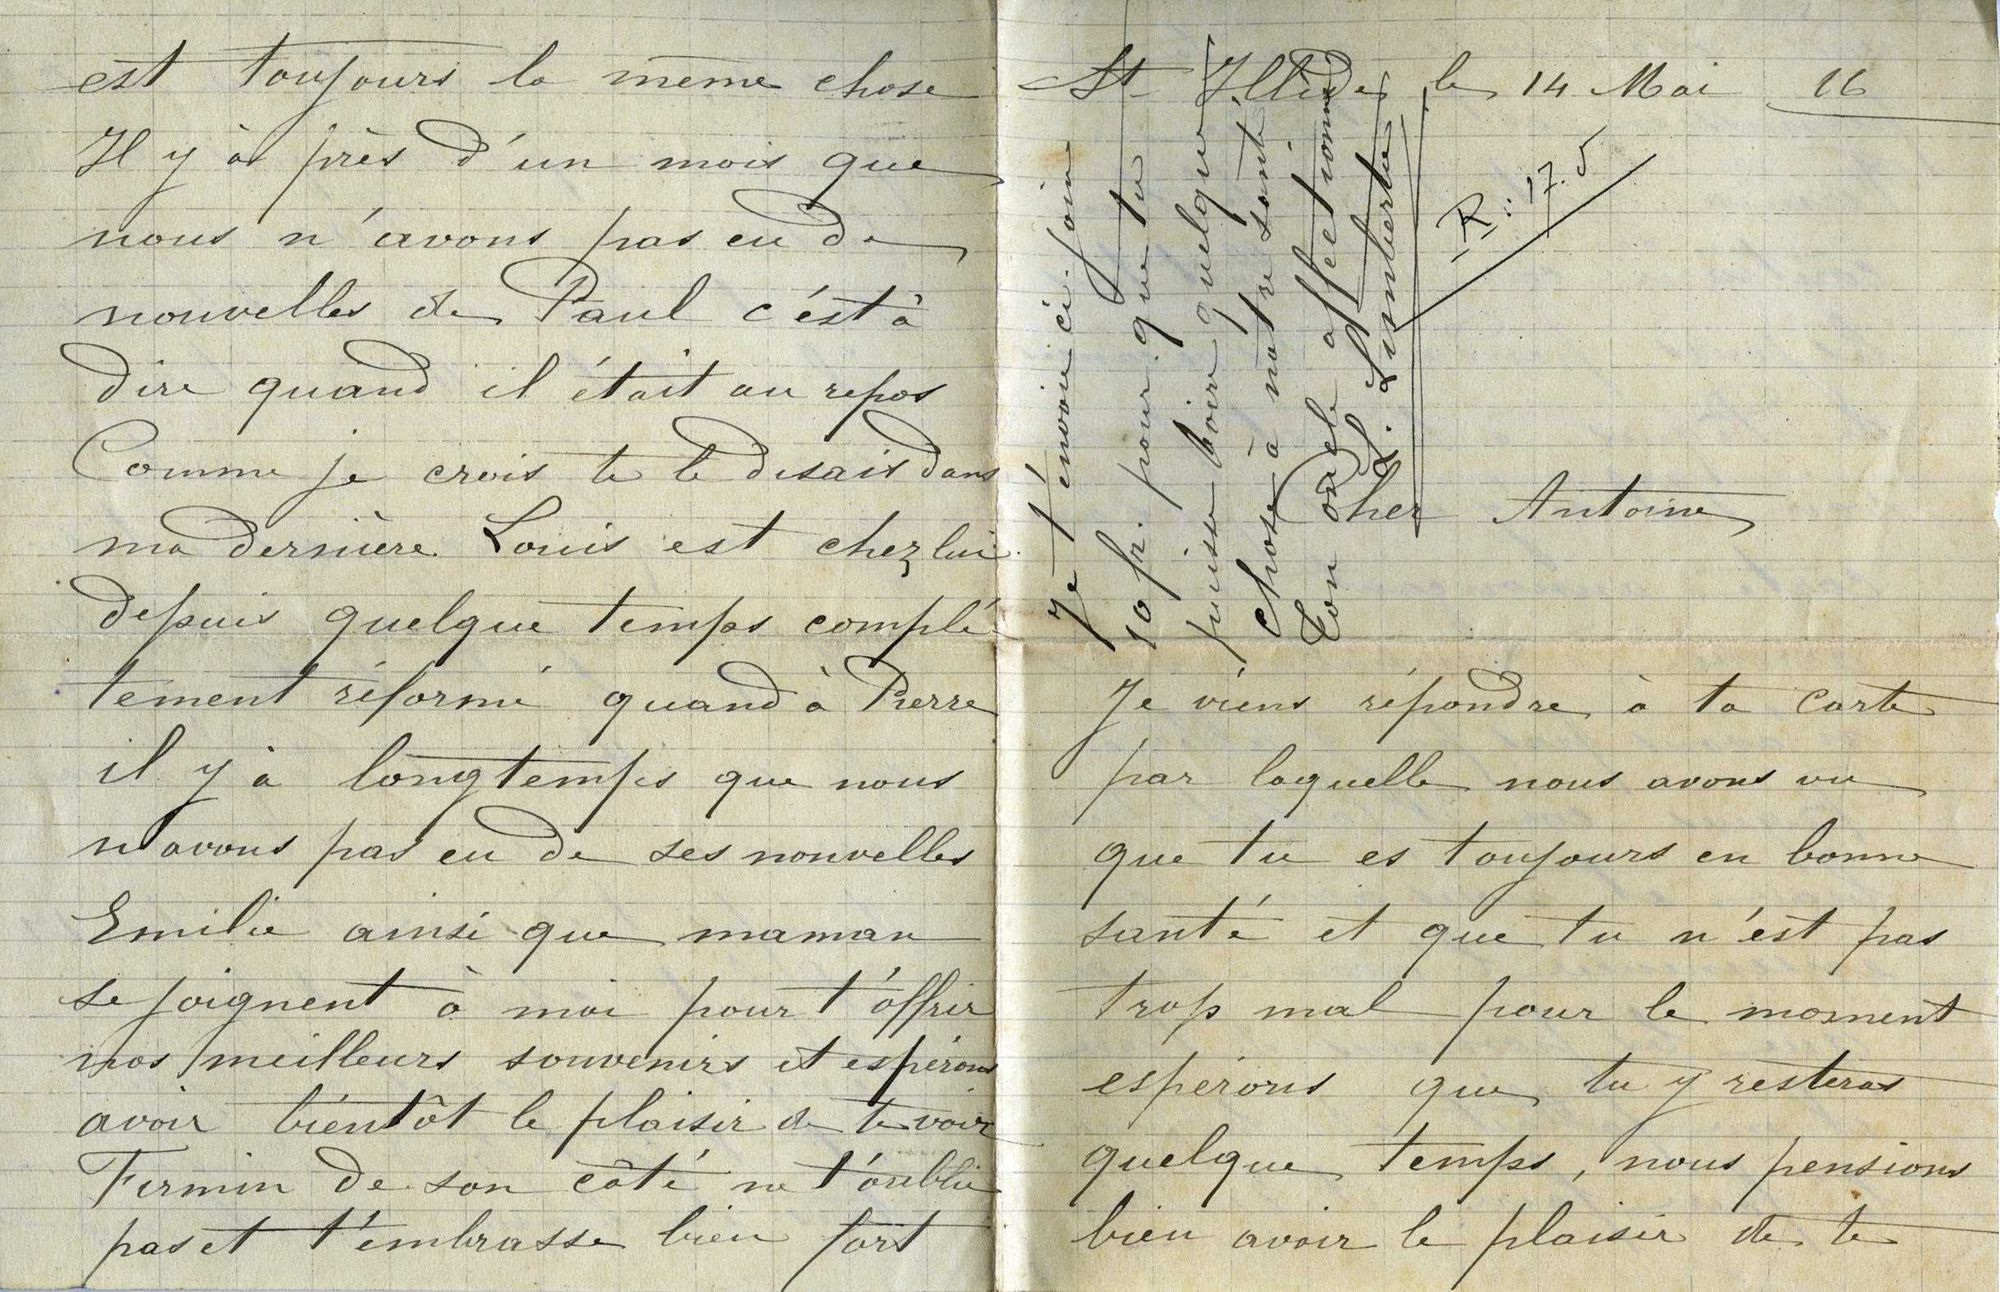 est toujours la même chose
Il y à près d'un mois que
nous n'avons pas eu de
nouvelles de Paul c'ést à
dire quand il était au repos
Comme je crois te le disais dans
ma dernière Louis est chez lui
depuis quelque temps complé-
tement réformé quand à Pierre
il y à longtemps que nous
n'avons pas eu de ses nouvelles
Emilie ainsi que maman
se joignent à moi pour t'offrir
nos meilleurs souvenirs et espérons
avoir bientôt le plaisir de te voir
Firmin de son côté ne t'oublie
pas et t'embrasse bien fort
St Illide le 14 Mai 16
R: 17.5
Cher Antoine
Je viens répondre à ta carte
par laquelle nous avons vu
que tu es toujours en bonne
santé et que tu n'est pas
trop mal pour le moment
espérons que tu y resteras
quelque temps, nous pensions
bien avoir le plaisir de te
Je t'envoie ci-join
10 fr. pour que tu
puisse boire quelque
chose à notre santé.
Ton oncle affectionné
L. Limbertie